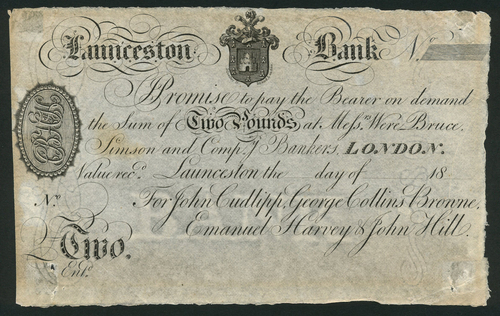 Launceston Bank No.
I Promise to pay the Bearer on demand
the Sum of Two Pounds at Messrs. Were Bruce
Simson and Comp.y Bankers, LONDON.
Value rec.d Launceston the day of 18
No. For John Cudlipp, George Collins Browne,
Emanuel Harvey & John Hill.
£ Two.
Ent.d